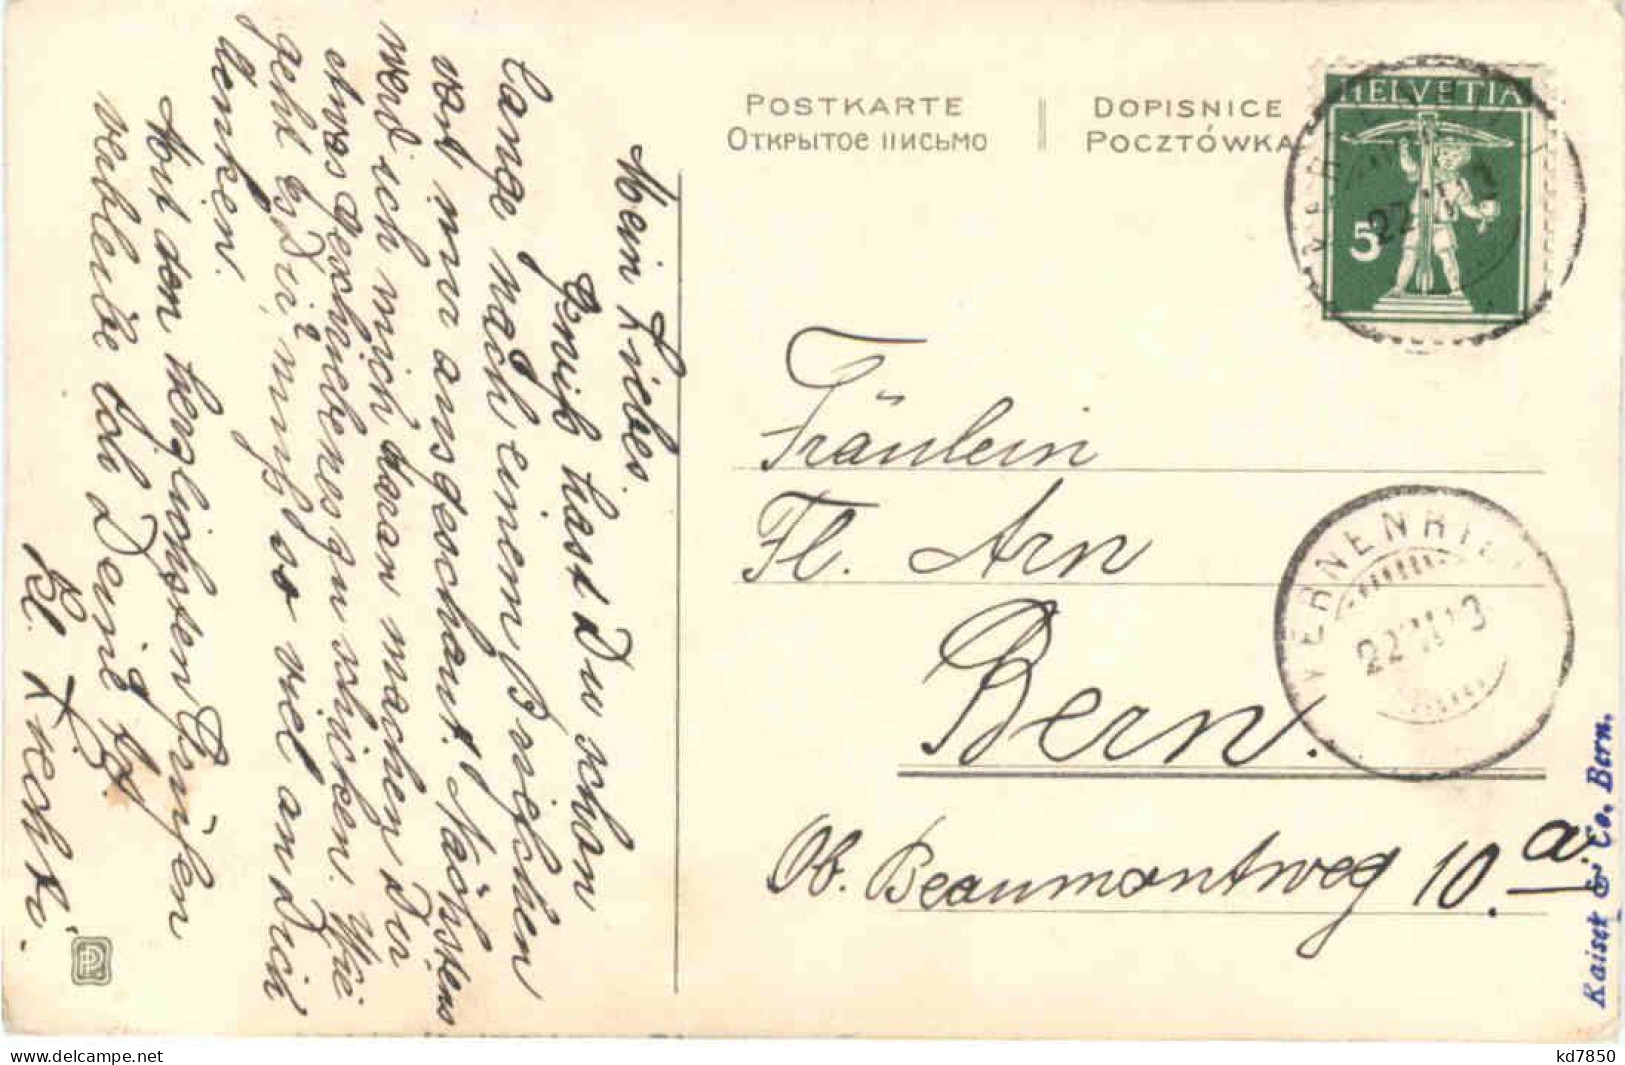 POSTKARTE
Открытое письмо
DOPISNICE
POCZTÓWKA
HELVETIA
5
22
Mein Liebes.
Gewiß hast Du schon
lange nach einem Briefchen
von mir ausgeschaut. Nächstens
werd ich mich daran machen Dir
etwas Geschriebenes zu schicken. Wie
geht es Dir, muß so viel an Dich
denken.
Mit den herzlichsten Grüßen
verbleibe ich Deine tr.
El. Knechti.
Fräulein
Fl. Arn
Bern.
Ob. Beaumontweg 10.a.
22
Kaiser & Co. Bern.
www.delcampe.net
kd7850